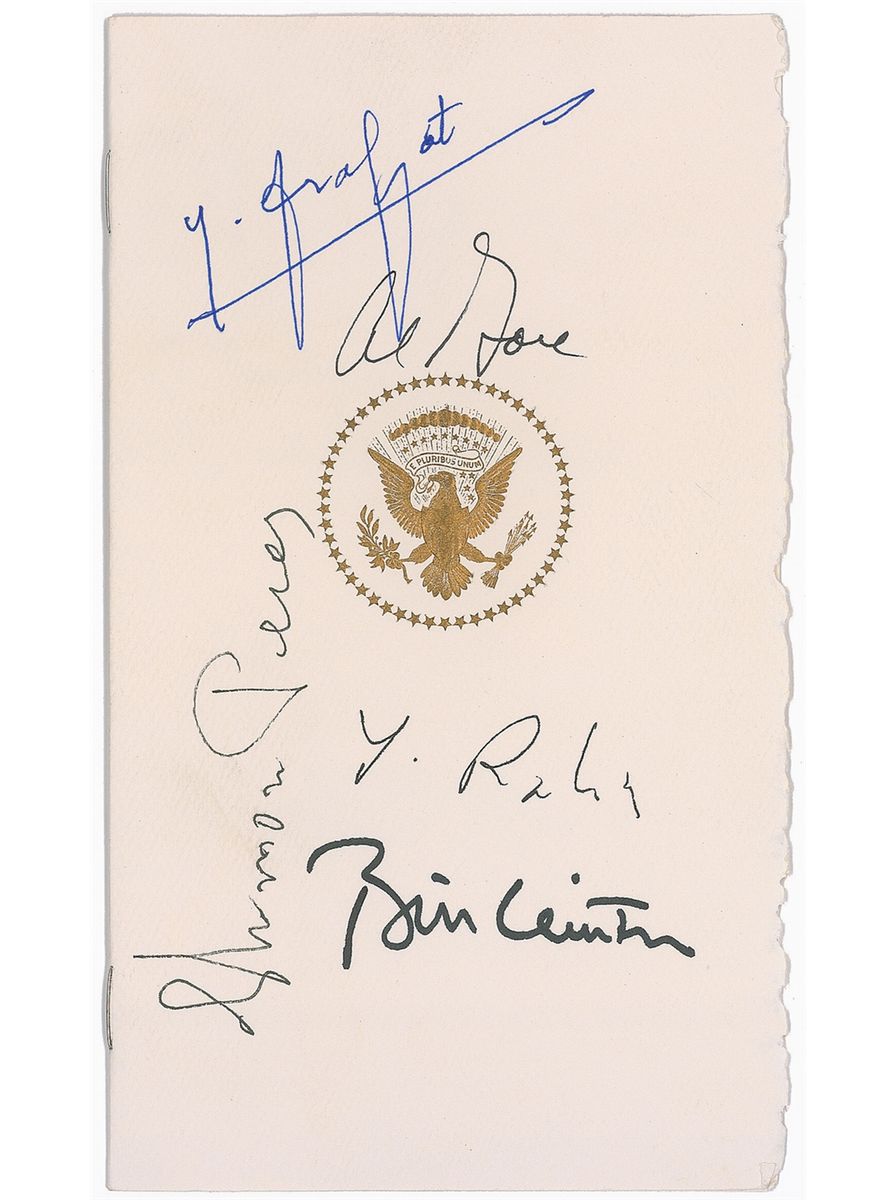 Y. Arafat
Al Gore
E PLURIBUS UNUM
Shimon Peres
Y. Rabin
Bill Clinton